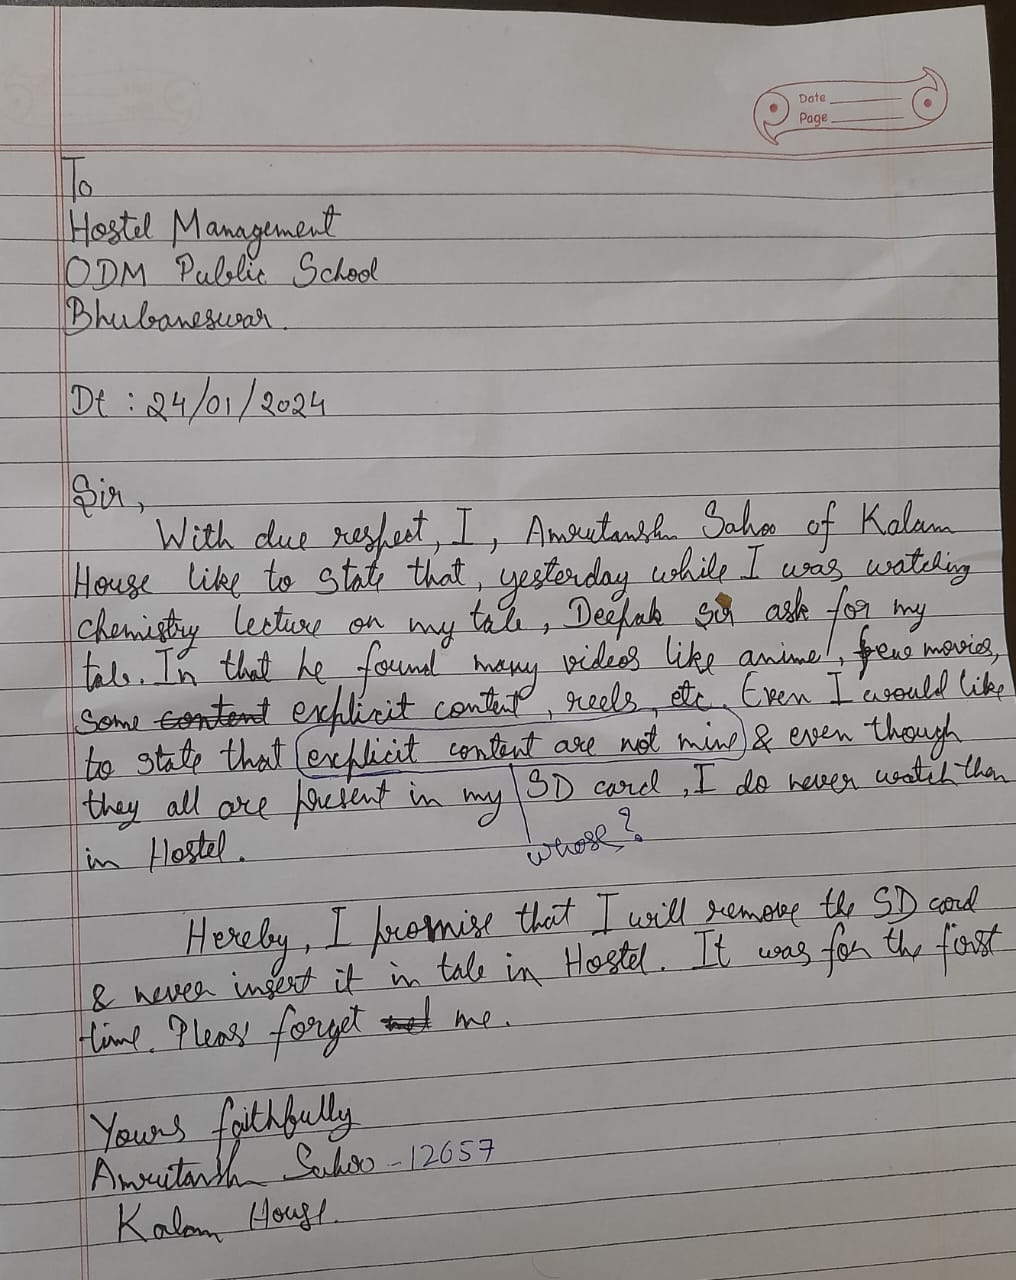 Date
Page
To
Hostel Management
ODM Public School
Bhubaneswar.
Dt : 24/01/2024
Sir,
With due respect, I, Amrutansh Sahoo of Kalam
House like to state that, yesterday while I was watching
chemistry lecture on my tab, Deepak Sir ask for my
tab. In that he found many videos like anime, few movies,
some content explicit content, reels, etc. Even I would like
to state that explicit content are not mine & even though
they all are present in my SD card, I do never watch then
in Hostel.
whose?
Hereby, I promise that I will remove the SD card
& never insert it in tab in Hostel. It was for the first
time. Pleas forget me.
Yours faithfully
Amrutansh Sahoo - 12657
Kalam House.